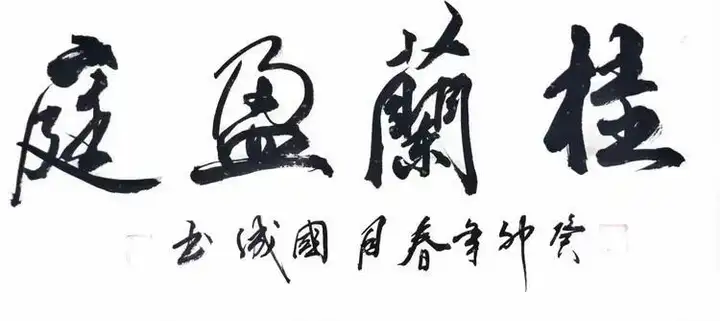 桂蘭盈庭
癸卯年春月國书